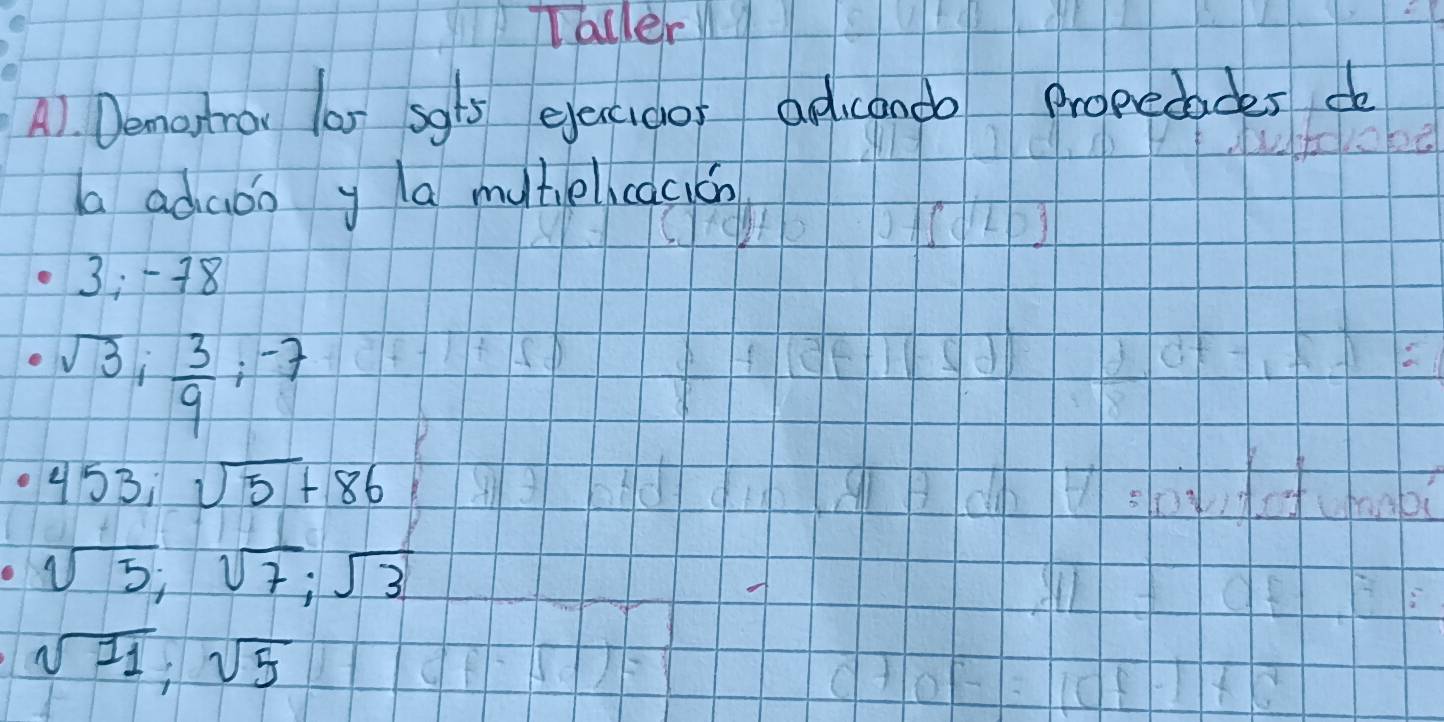 Taller
A). Demostrar los sgts ejercicios aplicando Propiedades de
la adición y la multiplicación
• 3; -78
• √3; 3/9; -7
• 453; √5+86
• √5; √7; √3
• √11; √5